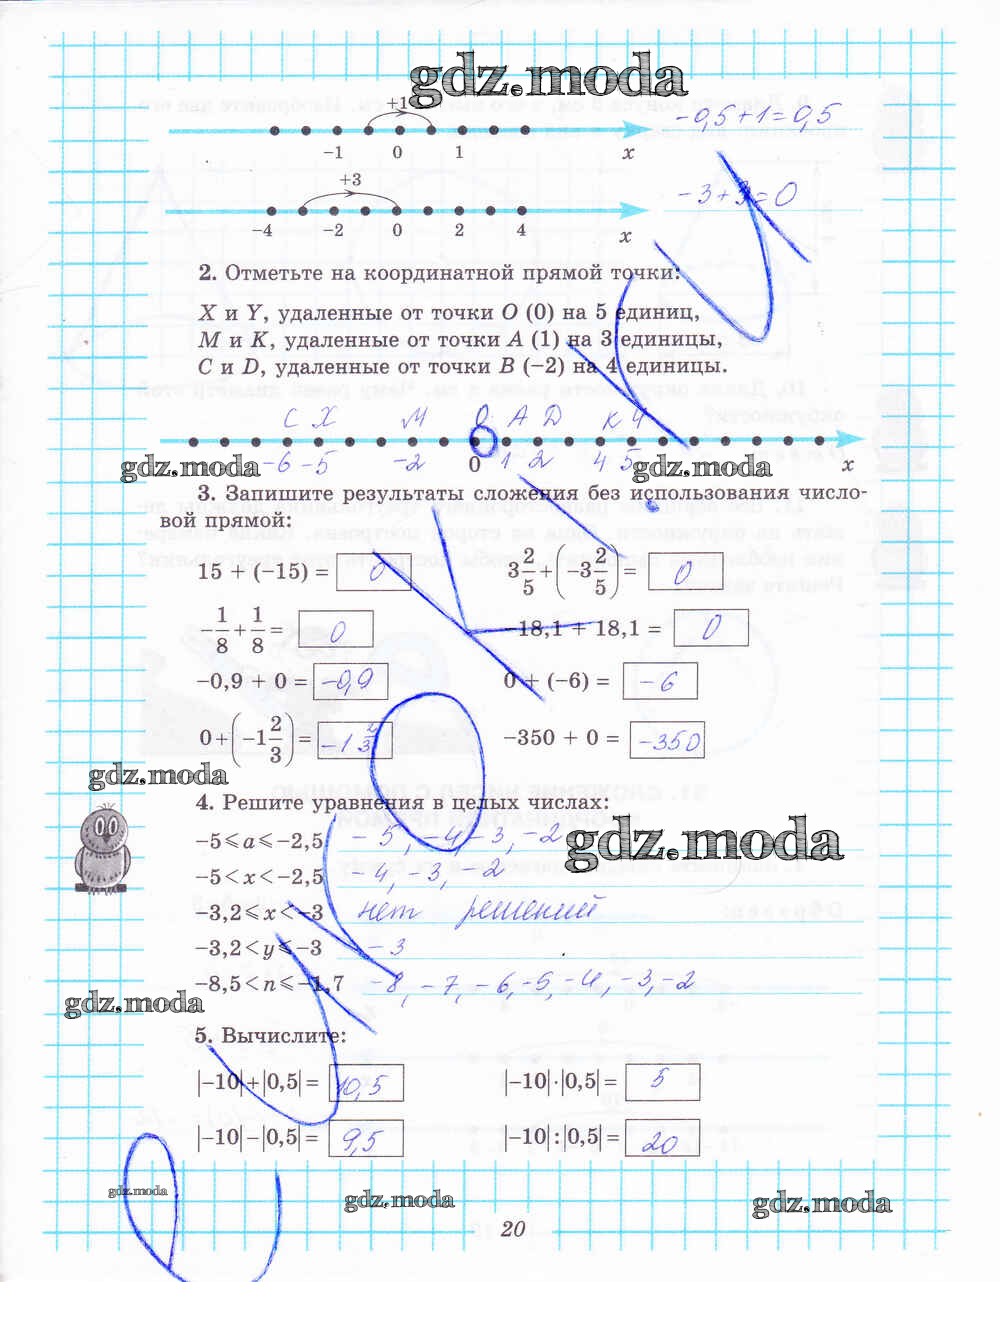 gdz.moda
+1
-0,5+1=0,5
−1 0 1 x
+3
-3+3=0
−4 −2 0 2 4 x
2. Отметьте на координатной прямой точки:
X и Y, удаленные от точки O (0) на 5 единиц,
M и K, удаленные от точки A (1) на 3 единицы,
C и D, удаленные от точки B (−2) на 4 единицы.
C X M O A D K Y
-6 -5 -2 0 1 2 4 5 x
gdz.moda gdz.moda
3. Запишите результаты сложения без использования число-
вой прямой:
15 + (−15) = 0 3 2/5 + (−3 2/5) = 0
−1/8 + 1/8 = 0 −18,1 + 18,1 = 0
−0,9 + 0 = -0,9 0 + (−6) = -6
0 + (−1 2/3) = -1 2/3 −350 + 0 = -350
gdz.moda
4. Решите уравнения в целых числах:
−5⩽a⩽−2,5 -5, -4, -3, -2
gdz.moda
−5<x<−2,5 -4, -3, -2
−3,2⩽x<−3 нет решений
−3,2<y⩽−3 -3
−8,5<n⩽−1,7 -8, -7, -6, -5, -4, -3, -2
gdz.moda
5. Вычислите:
|−10|+|0,5| = 10,5 |−10|·|0,5| = 5
|−10|−|0,5| = 9,5 |−10|:|0,5| = 20
gdz.moda gdz.moda gdz.moda
20